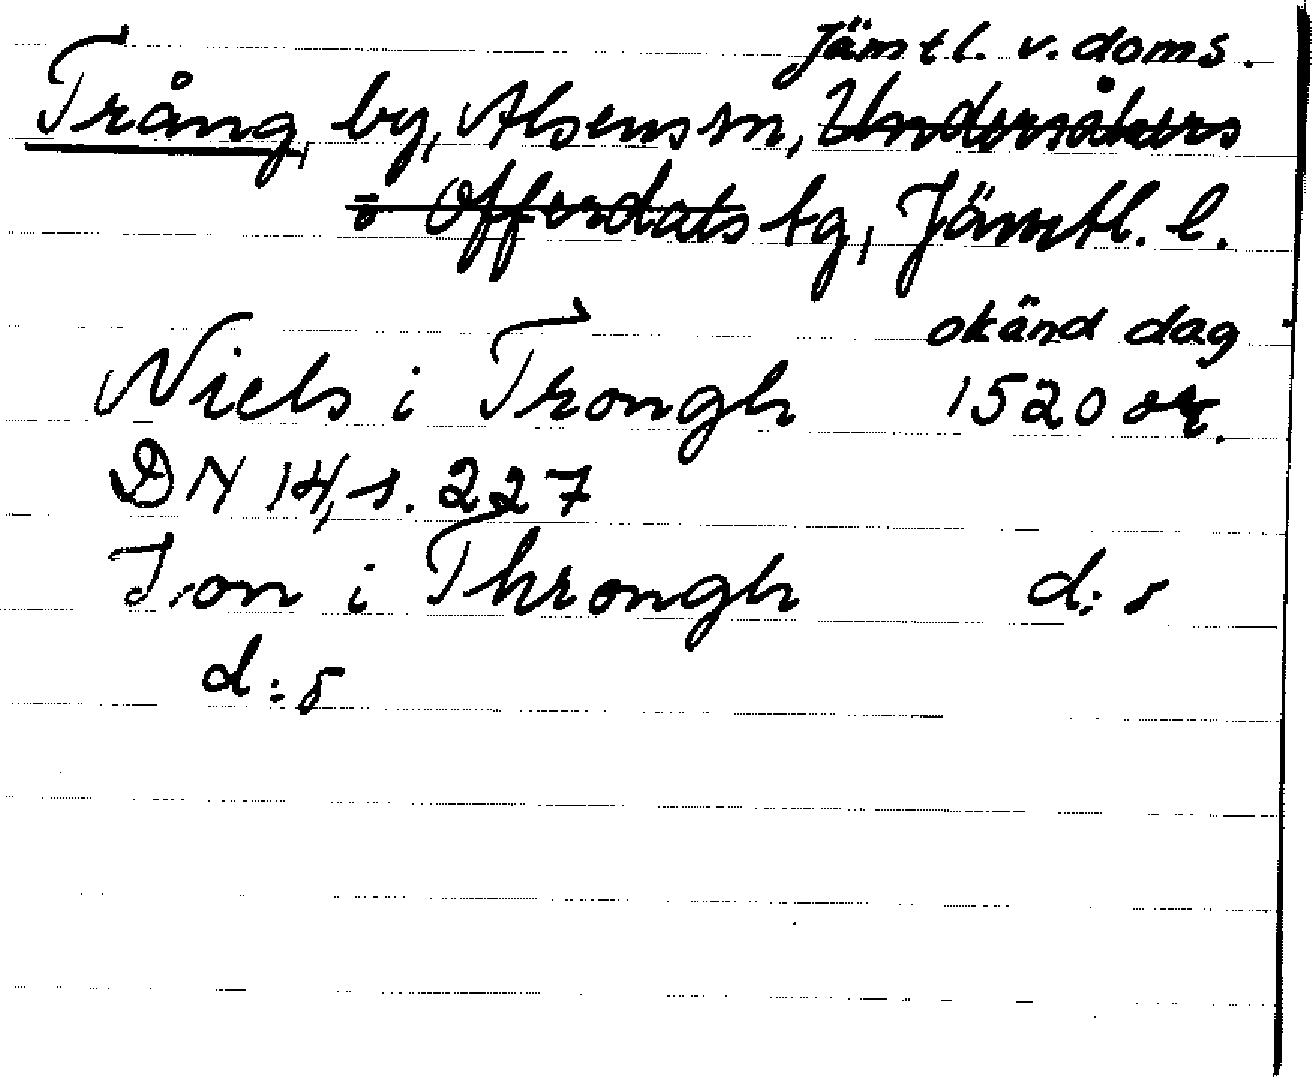 Jämtl. v. doms.
Trång, by, Alsens sn, Undersåkers
o Offerdals tg, Jämtl. l.
okänd dag
Niels i Trongh 1520 or.
DN 14, s. 227
Jon i Throngh d:s
d:s